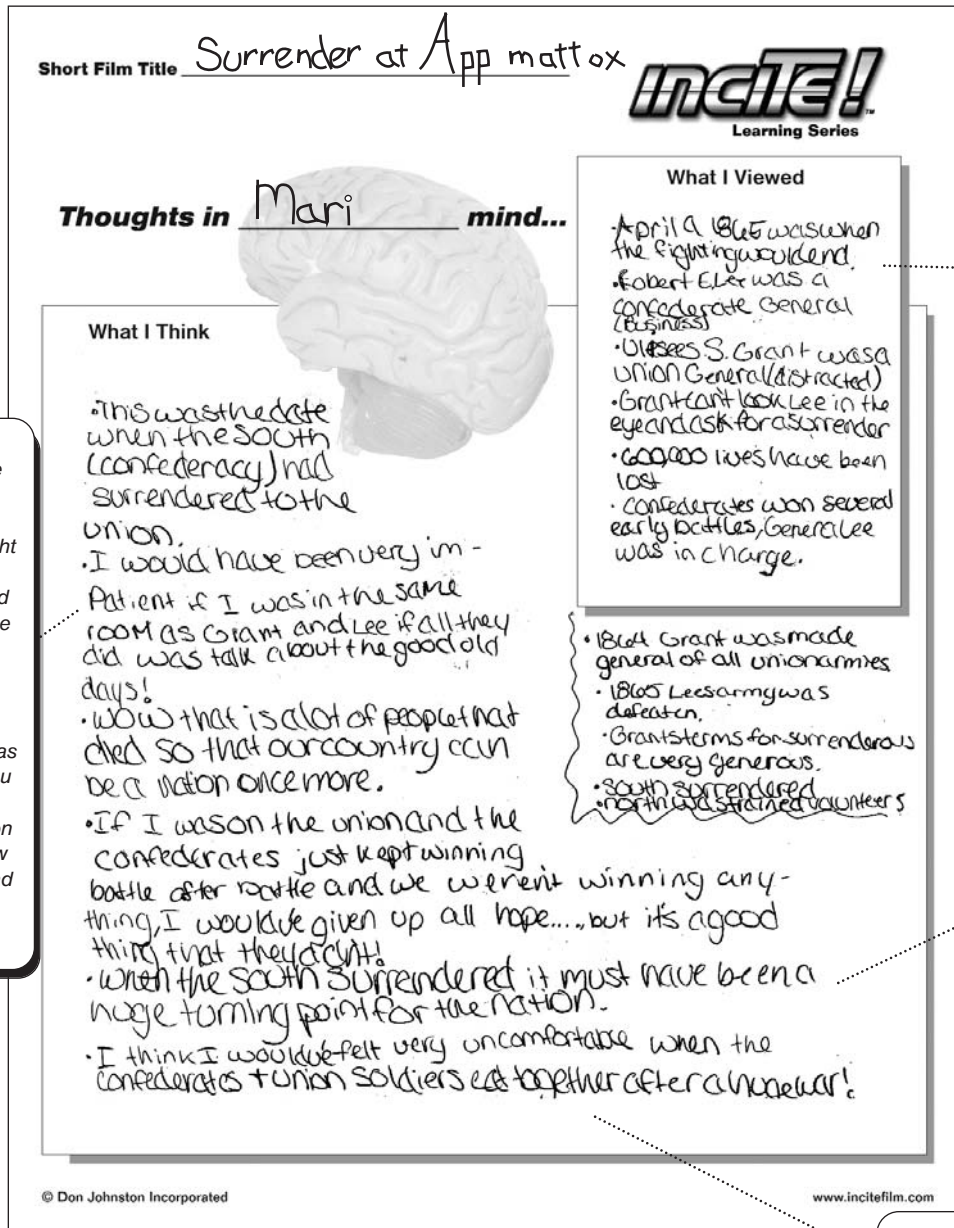 Short Film Title Surrender at App mattox
INCITE!™
Learning Series
Thoughts in Mari mind...
What I Viewed
•April 9 1865 was when
the fighting would end.
•Robert E. Lee was a
confederate General
(Business)
•Ulesees S. Grant was a
Union General (distracted)
•Grant can't look Lee in the
eye and ask for a surrender
•600,000 lives have been
lost
•Confederates won several
early battles, General Lee
was in charge.
•1864 Grant was made
general of all union armies
•1865 Lees army was
defeaten.
•Grants terms for surrenderous
are very generous.
•South surrendered
•north was trained vaunteers
What I Think
•This was the date
when the South
(confederacy) had
surrendered to the
union.
•I would have been very im-
Patient if I was in the same
room as Grant and Lee if all they
did was talk about the good old
days!
•Wow that is alot of people that
died so that our country can
be a nation once more.
•If I was on the union and the
confederates just kept winning
battle after battle and we weren't winning any-
thing, I would've given up all hope...., but it's a good
thing that they didn't!
•When the South Surrendered it must have been a
huge turning point for the nation.
•I think I would've felt very uncomfortable when the
confederates + union soldiers eat together after a huge war!
ht
d
e
as
u
on
w
nd
© Don Johnston Incorporated
www.incitefilm.com